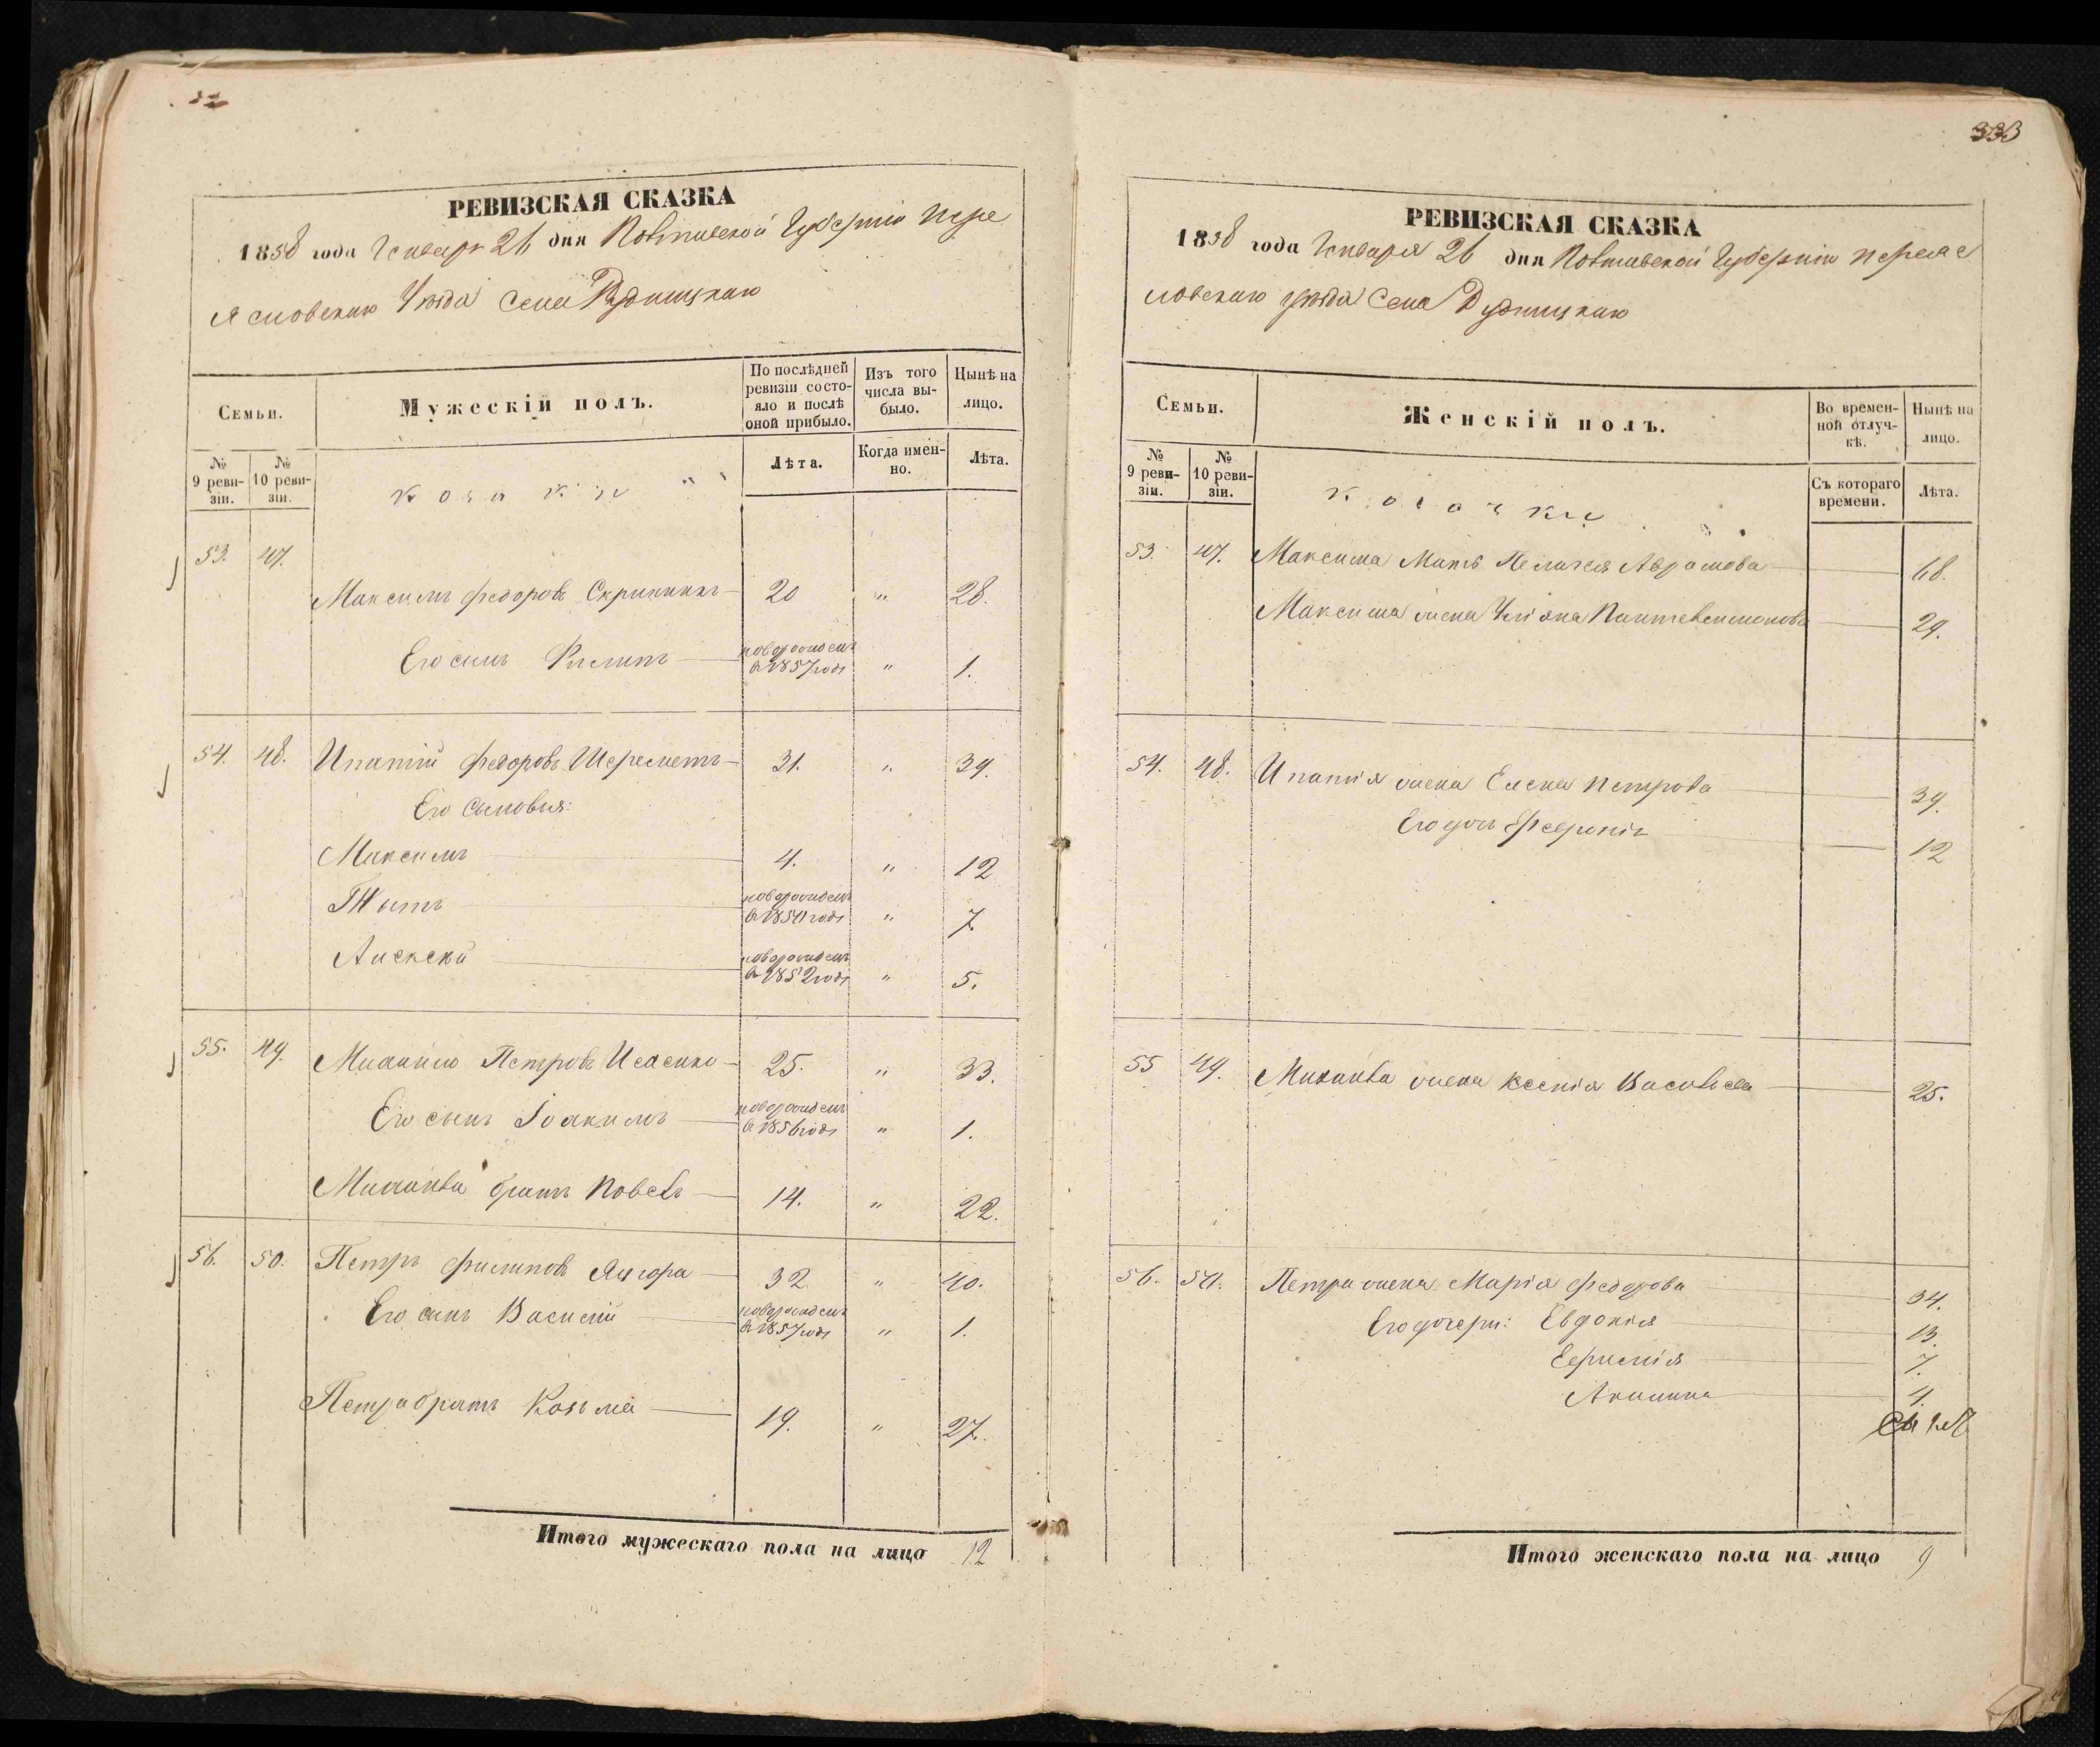 333
РЕВИЗСКАЯ СКАЗКА
1858 года Генваря 26 дня Полтавской Губерніи Пере
яславскаго Уезда Села Рудницкаго
Семьи.
Мужескій полъ.
По послѣдней ревизіи состояло и послѣ оной прибыло.
Изъ того числа выбыло.
Цынѣ на лицо.
№ 9 ревизіи.
№ 10 ревизіи.
козаки
Лѣта.
Когда именно.
Лѣта.
53. 47.
Максимъ Федоровъ Скрипникъ 20 " 28.
Его сынъ Филипъ новорожденъ в 1857 годѣ " 1.
54. 48. Ипатій Федоровъ Шереметъ 31. " 39.
Его Сыновья:
Максимъ 4. " 12
Титъ новорожденъ в 1850 годѣ " 7.
Алексей новорожденъ в 1852 годѣ " 5.
55. 49. Михайло Петровъ Исаенко 25. " 33.
Его сынъ Іоакимъ новорожденъ в 1856 годѣ " 1.
Михайла братъ Павелъ 14. " 22.
56. 50. Петръ Филиповъ 32 " 40.
Его сынъ Василий новорожденъ в 1857 годѣ " 1.
Петра братъ Козьма 19. " 27.
Итого мужескаго пола на лицо 12
РЕВИЗСКАЯ СКАЗКА
1858 года Генваря 26 дня Полтавской Губерніи Переяс
лавскаго уезда Села Рудницкаго
Семьи.
Женскій полъ.
Во временной отлучкѣ.
Нынѣ на лицо.
№ 9 ревизіи.
№ 10 ревизіи.
козачки
Съ котораго времени.
Лѣта.
53. 47. Максима Мать Пелагея Аврамова 68.
Максима жена Уліяна Пантелеимонова 29.
54. 48. Ипатія жена Елена Петрова 39.
Его дочь Февронія 12
55 49. Михайла жена Ксенія Васильева 25.
56. 50. Петра жена Марія Федорова 34.
Его дочери: Евдокія 13.
7.
Акилина 4.
Итого женскаго пола на лицо 9